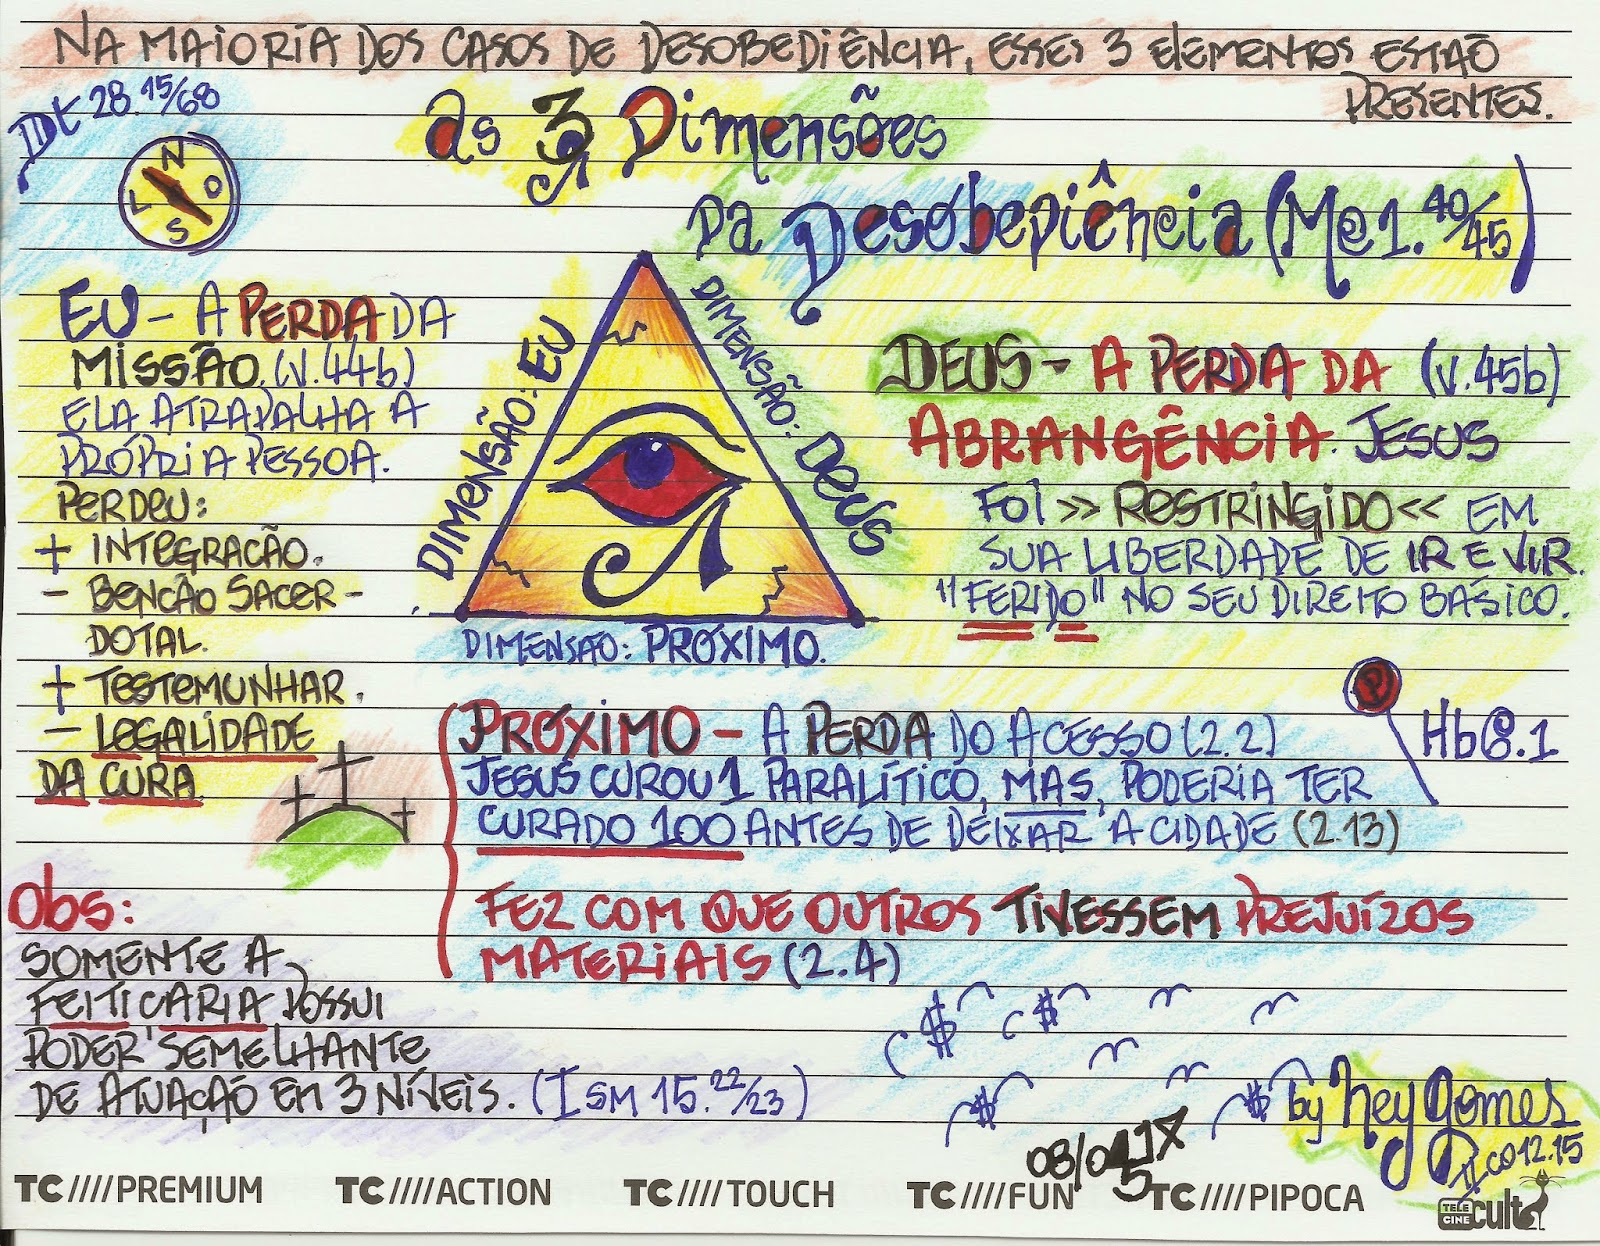 NA MAIORIA DOS CASOS DE DESOBEDIÊNCIA, ESSES 3 ELEMENTOS ESTÃO
PRESENTES.
Dt 28.15/68
N
L O
S
As 3 Dimensões
Da Desobediência (Mc 1.40/45)
EU - A PERDA DA
MISSÃO. (V.44b)
ELA ATRAPALHA A
PRÓPRIA PESSOA.
PERDEU:
+ INTEGRAÇÃO.
- BENÇÃO SACER-
DOTAL.
+ TESTEMUNHAR.
- LEGALIDADE
DA CURA
DIMENSÃO: EU
DIMENSÃO: DEUS
DIMENSÃO: PRÓXIMO.
DEUS - A PERDA DA (V.45b)
ABRANGÊNCIA. JESUS
FOI >> RESTRINGIDO << EM
SUA LIBERDADE DE IR E VIR.
"FERIDO" NO SEU DIREITO BÁSICO.
P
Hb 6.1
PRÓXIMO - A PERDA DO ACESSO (2.2)
JESUS CUROU 1 PARALÍTICO, MAS, PODERIA TER
CURADO 100 ANTES DE DEIXAR A CIDADE (2.13)
FEZ COM QUE OUTROS TIVESSEM PREJUÍZOS
MATERIAIS (2.4)
Obs:
SOMENTE A
FEITIÇARIA POSSUI
PODER SEMELHANTE
DE ATUAÇÃO EM 3 NÍVEIS. (I SM 15.22/23)
$ $
$ $
by Ney Gomes
12.15
TC////PREMIUM TC////ACTION TC////TOUCH TC////FUN TC////PIPOCA TELE CINE cult